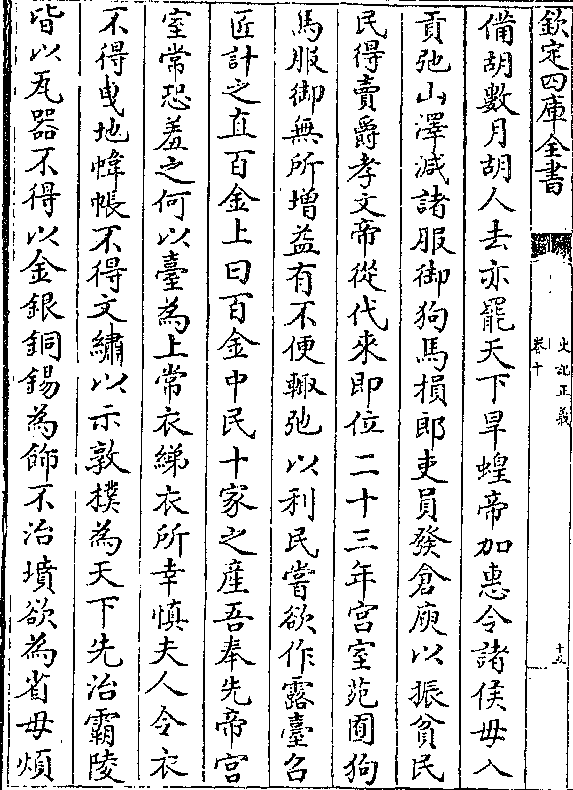 欽定四庫全書
史記正義
卷十
十五
備胡數月胡人去亦罷天下旱蝗帝加惠令諸侯毋入
貢弛山澤減諸服御狗馬損郎吏員發倉庾以振貧民
民得賣爵孝文帝從代來即位二十三年宫室苑囿狗
馬服御無所增益有不便輙弛以利民嘗欲作露臺召
匠計之直百金上曰百金中民十家之産吾奉先帝宫
室常恐羞之何以臺為上常衣綈衣所幸慎夫人令衣
不得曳地幃帳不得文繡以示敦撲為天下先治霸陵
皆以瓦器不得以金銀銅錫為飾不治墳欲為省毋煩